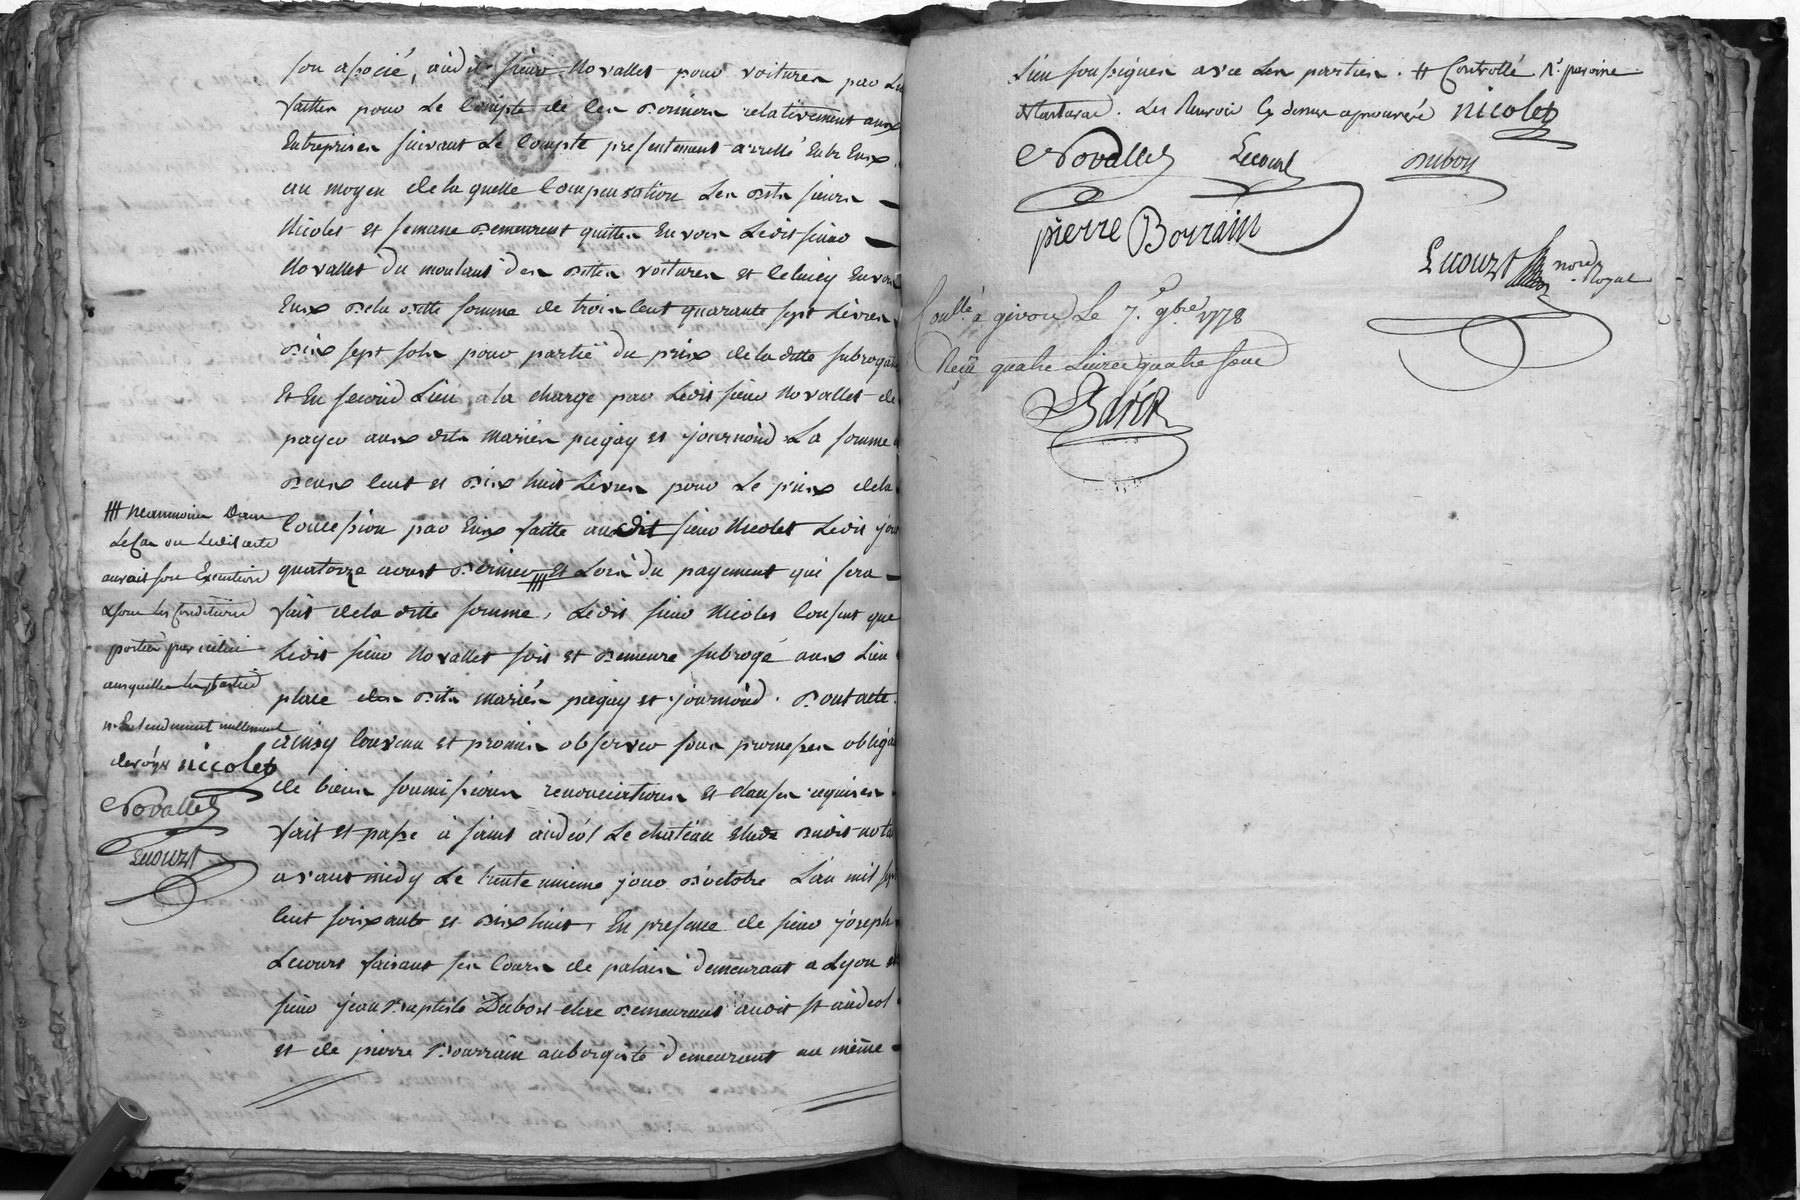 son associé, audit sieur Novallet pour voitures par lui
faittes pour le compte de ces derniers relativement aux
Entreprises suivant le compte presentement arretté Entr'Eux
au moyen de laquelle Compensation les dits sieurs
Nicolet et semane demeurent quittes Envers ledit sieur
Novallet du montant des dittes voitures et celuicy Envers
Eux de la ditte somme de trois cent quarante sept Livres
dix sept sols pour partië du prix de la ditte subrogation
Et En second Lieu a la charge par ledit sieur Novallet de
payer aux dits mariés piegay et journoud La somme
deux cent et dix huit Livres pour Le prix de la
Concession par Eux faitte audit sieur Nicolet Ledit jour
quatorze aoust dernier et Lors du payement qui sera
fait de la ditte somme, Ledit sieur Nicolet Consent que
Ledit sieur Novallet soit et demeure subrogé aux Lieu
place des dits mariés piegay et journoud. Dont acte
ainsy Convenu et promis observer sous promesses obliga
de biens soumissions renonciations et clauses requises
fait et passé à saint andéol Le chateau Etude dudit nota
avant midy Le trente unieme jour d'octobre L'an mil sept
cent soixante et dix huit, En presence de sieur joseph
Lecourt faisant ses Cours de palais demeurant a Lyon et
sieur jean Baptiste Dubost clerc demeurant audit st andeol
et de pierre Bourrain aubergiste demeurant au même
neanmoins Dans
Le Cas ou Ledit acte
aurait son Execution
& sous les Conditions
portées par icelui
auxquelles les parties
n'Entendement nullement
deroger nicolet
Novallet
Lecourt
Lieu soussignés avec les parties. Controllé
Les Renvois cy dessus approuvéé nicolet
Novallet Lecourt Dubost
pierre Boyrain
Lecourt nore Royal
Conllé a givors Le 7e 9bre 1778
Reçu quatre Livres quatre sous